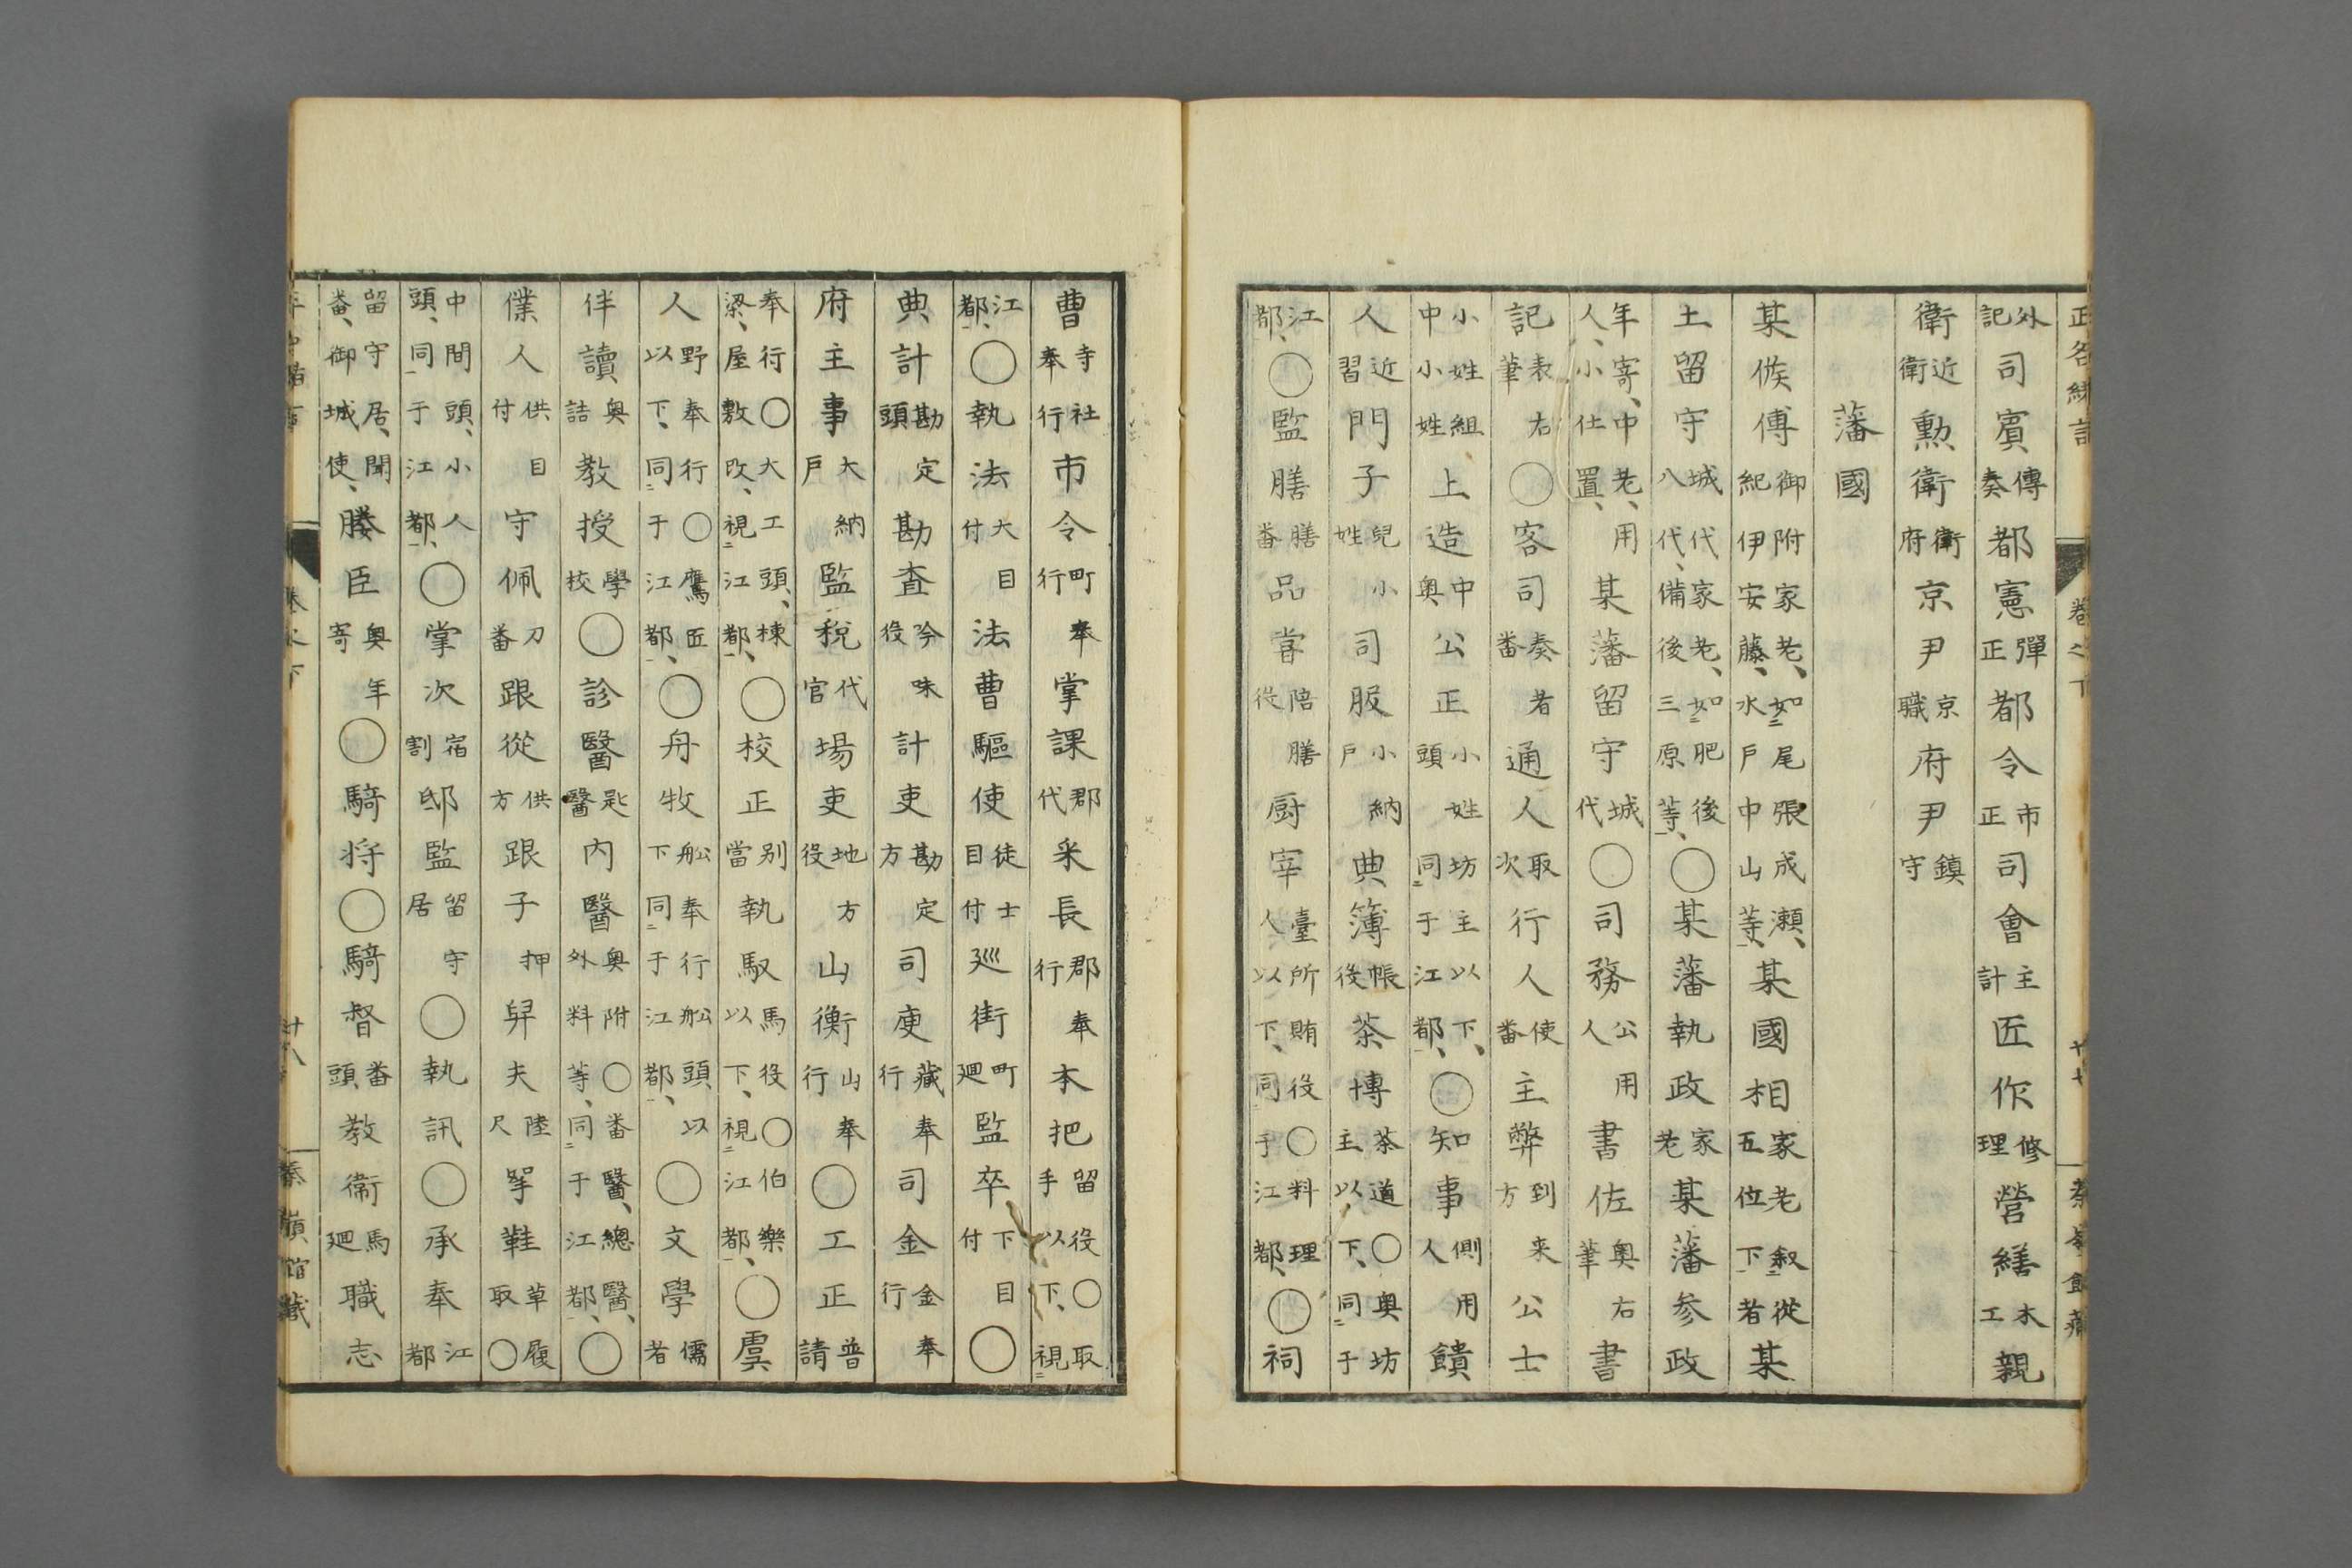 正名緒言 卷之下 廿七
外記司賓傳奏都憲彈正都令市正司會主計匠作修理營繕木工親
衛近衛勲衛衛府京尹京職府尹鎮守
藩國
某侯傅御附家老、如尾張成瀬、紀伊安藤、水戸中山等、某國相家老叙從五位下者某
土留守城代家老、如肥後八代、備後三原等、〇某藩執政家老某藩参政
年寄、中老、用人、小仕置、某藩留守城代〇司務公用人書佐奥右筆書
記表右筆〇客司奏者番通人取次行人使番主弊到来方公士
小姓組中小姓上造中奥公正小姓頭坊主以下、同于江都、〇知事側用人饋
人近習門子兒小姓司服小納戸典簿帳役茶博茶道〇奥坊主以下、同于
江都、〇監膳膳番品甞陪膳役厨宰臺所賄役〇料理人以下、同于江都、〇祠
曹寺社奉行市令町奉行掌課郡代釆長郡奉行本把留役〇取手以下、視
江都、〇執法大目付法曹驅使徒士目付巡街町廻監卒下目付〇
典計勘定頭勘査吟味役計吏勘定方司庾藏奉行司金金奉行
府主事大納戸監稅代官場吏地方役山衡山奉行〇工正普請
奉行〇大工頭、棟梁、屋敷改、視江都、〇校正別當執馭馬役〇伯樂以下、視江都、〇虞
人野奉行〇鷹匠以下、同于江都、〇舟牧舩奉行舩頭以下同于江都、〇文學儒者
伴讀奥詰教授學校〇診醫匙醫内醫奥附〇番醫、總醫、外料等、同于江都、〇
僕人供目付守佩刀番跟從供方跟子押舁夫陸尺挐鞋草履取〇
中間頭、小人頭、同于江都、〇掌次宿割邸監留守居〇執訊〇承奉江都
留守居、聞番、御城使、媵臣奥年寄〇騎将〇騎督番頭教衛馬廻職志
卷之下 廿八